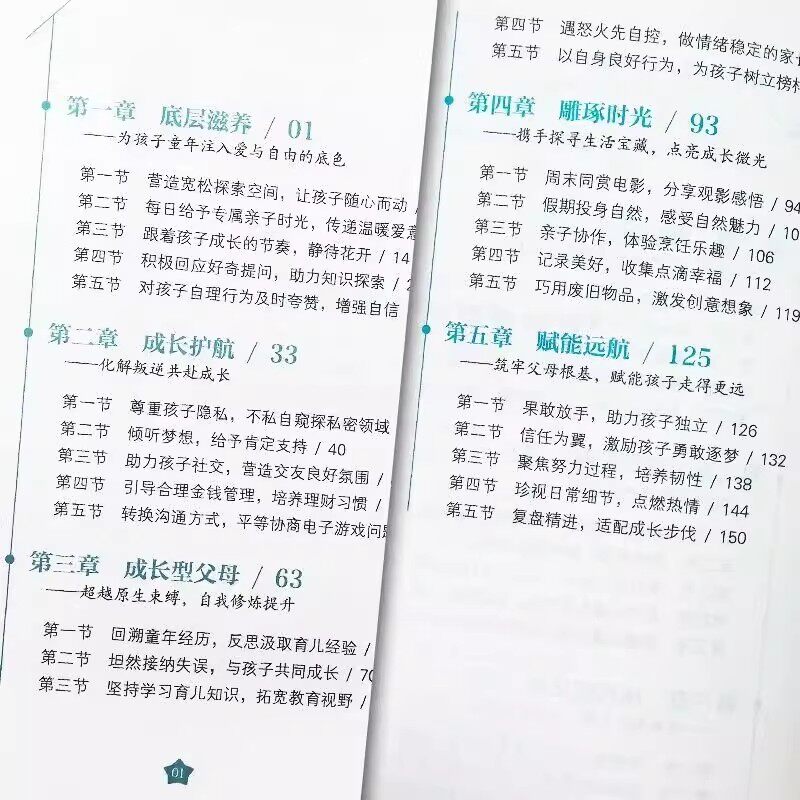 第一章 底层滋养 / 01
——为孩子童年注入爱与自由的底色
第一节 营造宽松探索空间，让孩子随心而动 /
第二节 每日给予专属亲子时光，传递温暖爱意
第三节 跟着孩子成长的节奏，静待花开 / 14
第四节 积极回应好奇提问，助力知识探索 / 2
第五节 对孩子自理行为及时夸赞，增强自信
第二章 成长护航 / 33
——化解叛逆共赴成长
第一节 尊重孩子隐私，不私自窥探私密领域
第二节 倾听梦想，给予肯定支持 / 40
第三节 助力孩子社交，营造交友良好氛围 /
第四节 引导合理金钱管理，培养理财习惯 /
第五节 转换沟通方式，平等协商电子游戏问题
第三章 成长型父母 / 63
——超越原生束缚，自我修炼提升
第一节 回溯童年经历，反思汲取育儿经验 /
第二节 坦然接纳失误，与孩子共同成长 / 70
第三节 坚持学习育儿知识，拓宽教育视野 /
01
第四节 遇怒火先自控，做情绪稳定的家长
第五节 以自身良好行为，为孩子树立榜样
第四章 雕琢时光 / 93
——携手探寻生活宝藏，点亮成长微光
第一节 周末同赏电影，分享观影感悟 / 94
第二节 假期投身自然，感受自然魅力 / 10
第三节 亲子协作，体验烹饪乐趣 / 106
第四节 记录美好，收集点滴幸福 / 112
第五节 巧用废旧物品，激发创意想象 / 119
第五章 赋能远航 / 125
——筑牢父母根基，赋能孩子走得更远
第一节 果敢放手，助力孩子独立 / 126
第二节 信任为翼，激励孩子勇敢逐梦 / 132
第三节 聚焦努力过程，培养韧性 / 138
第四节 珍视日常细节，点燃热情 / 144
第五节 复盘精进，适配成长步伐 / 150